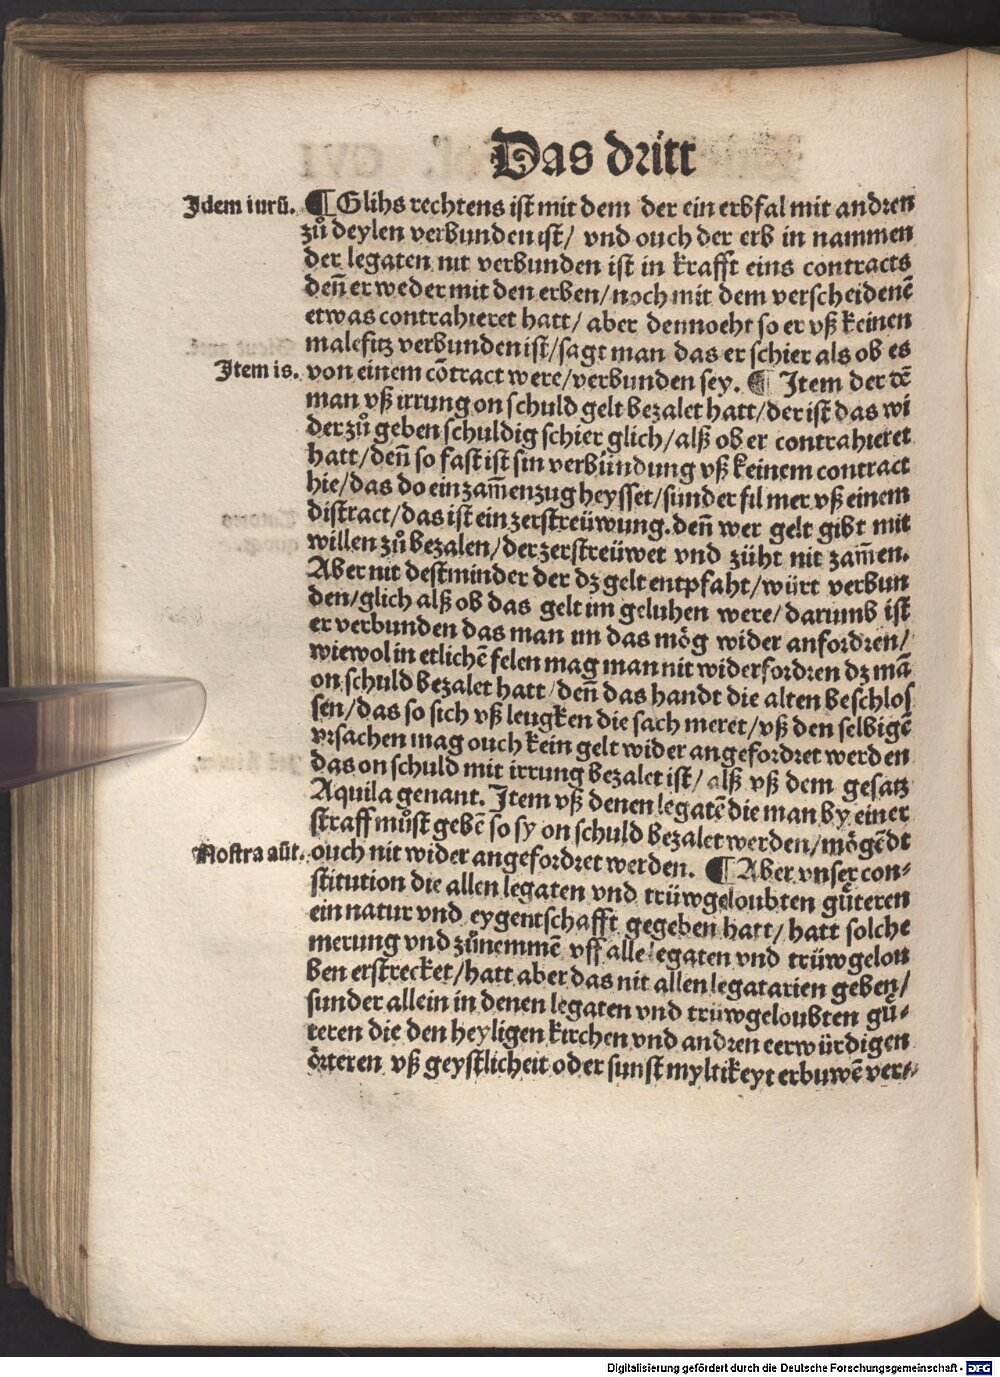 Das dritt
Idem iurū. ¶ Glihs rechtens ist mit dem der ein erbfal mit andren
zů deylen verbunden ist/ vnd ouch der erb in nammen
der legaten nit verbunden ist in krafft eins contracts
den̄ er weder mit den erben/noch mit dem verscheidenē
etwas contrahieret hatt/ aber dennoeht so er vß keinen
malefitz verbunden ist/sagt man das er schier als ob es
Item is. von einem cōtract were/verbunden sey. ¶ Item der dē
man vß irrung on schuld gelt bezalet hatt/der ist das wi
der zů geben schuldig schier glich/alß ob er contrahieret
hatt/den̄ so fast ist sin verbündung vß keinem contract
hie/das do ein zam̄en zug heysset/sunder fil mer vß einem
distract/das ist ein zerstreüwung. den̄ wer gelt gibt mit
willen zů bezalen/der zerstreüwet vnd züht nit zam̄en.
Aber nit destminder der dz gelt entpfaht/würt verbun
den/glich alß ob das gelt im geluhen were/darumb ist
er verbunden das man im das mög wider anfordren/
wiewol in etlichē felen mag man nit widerfordren dz mā
on schuld bezalet hatt/den̄ das handt die alten beschlos
sen/das so sich vß leugken die sach meret/vß den selbigē
vrsachen mag ouch kein gelt wider angefordret werden
das on schuld mit irrung bezalet ist/ alß vß dem gesatz
Aquila genant. Item vß denen legatē die man by einer
straff můst gebē so sy on schuld bezalet werden/mögēdt
ouch nit wider angefordret werden. ¶ Aber vnser con⸗
Nostra aūt. stitution die allen legaten vnd trüwgeloubten gůteren
ein natur vnd eygentschafft gegeben hatt/ hatt solche
merung vnd zůnemmē vff alle legaten vnd trüwgelou
ben erstrecket/hatt aber das nit allen legatarien geben/
sunder allein in denen legaten vnd trüwgeloubten gů⸗
teren die den heyligen kirchen vnd andren eerwürdigen
örteren vß geystlicheit oder sunst myltikeyt erbuwē ver⸗
Digitalisierung gefördert durch die Deutsche Forschungsgemeinschaft - DFG